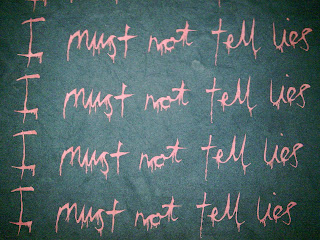 I must not tell lies
I must not tell lies
I must not tell lies
I must not tell lies